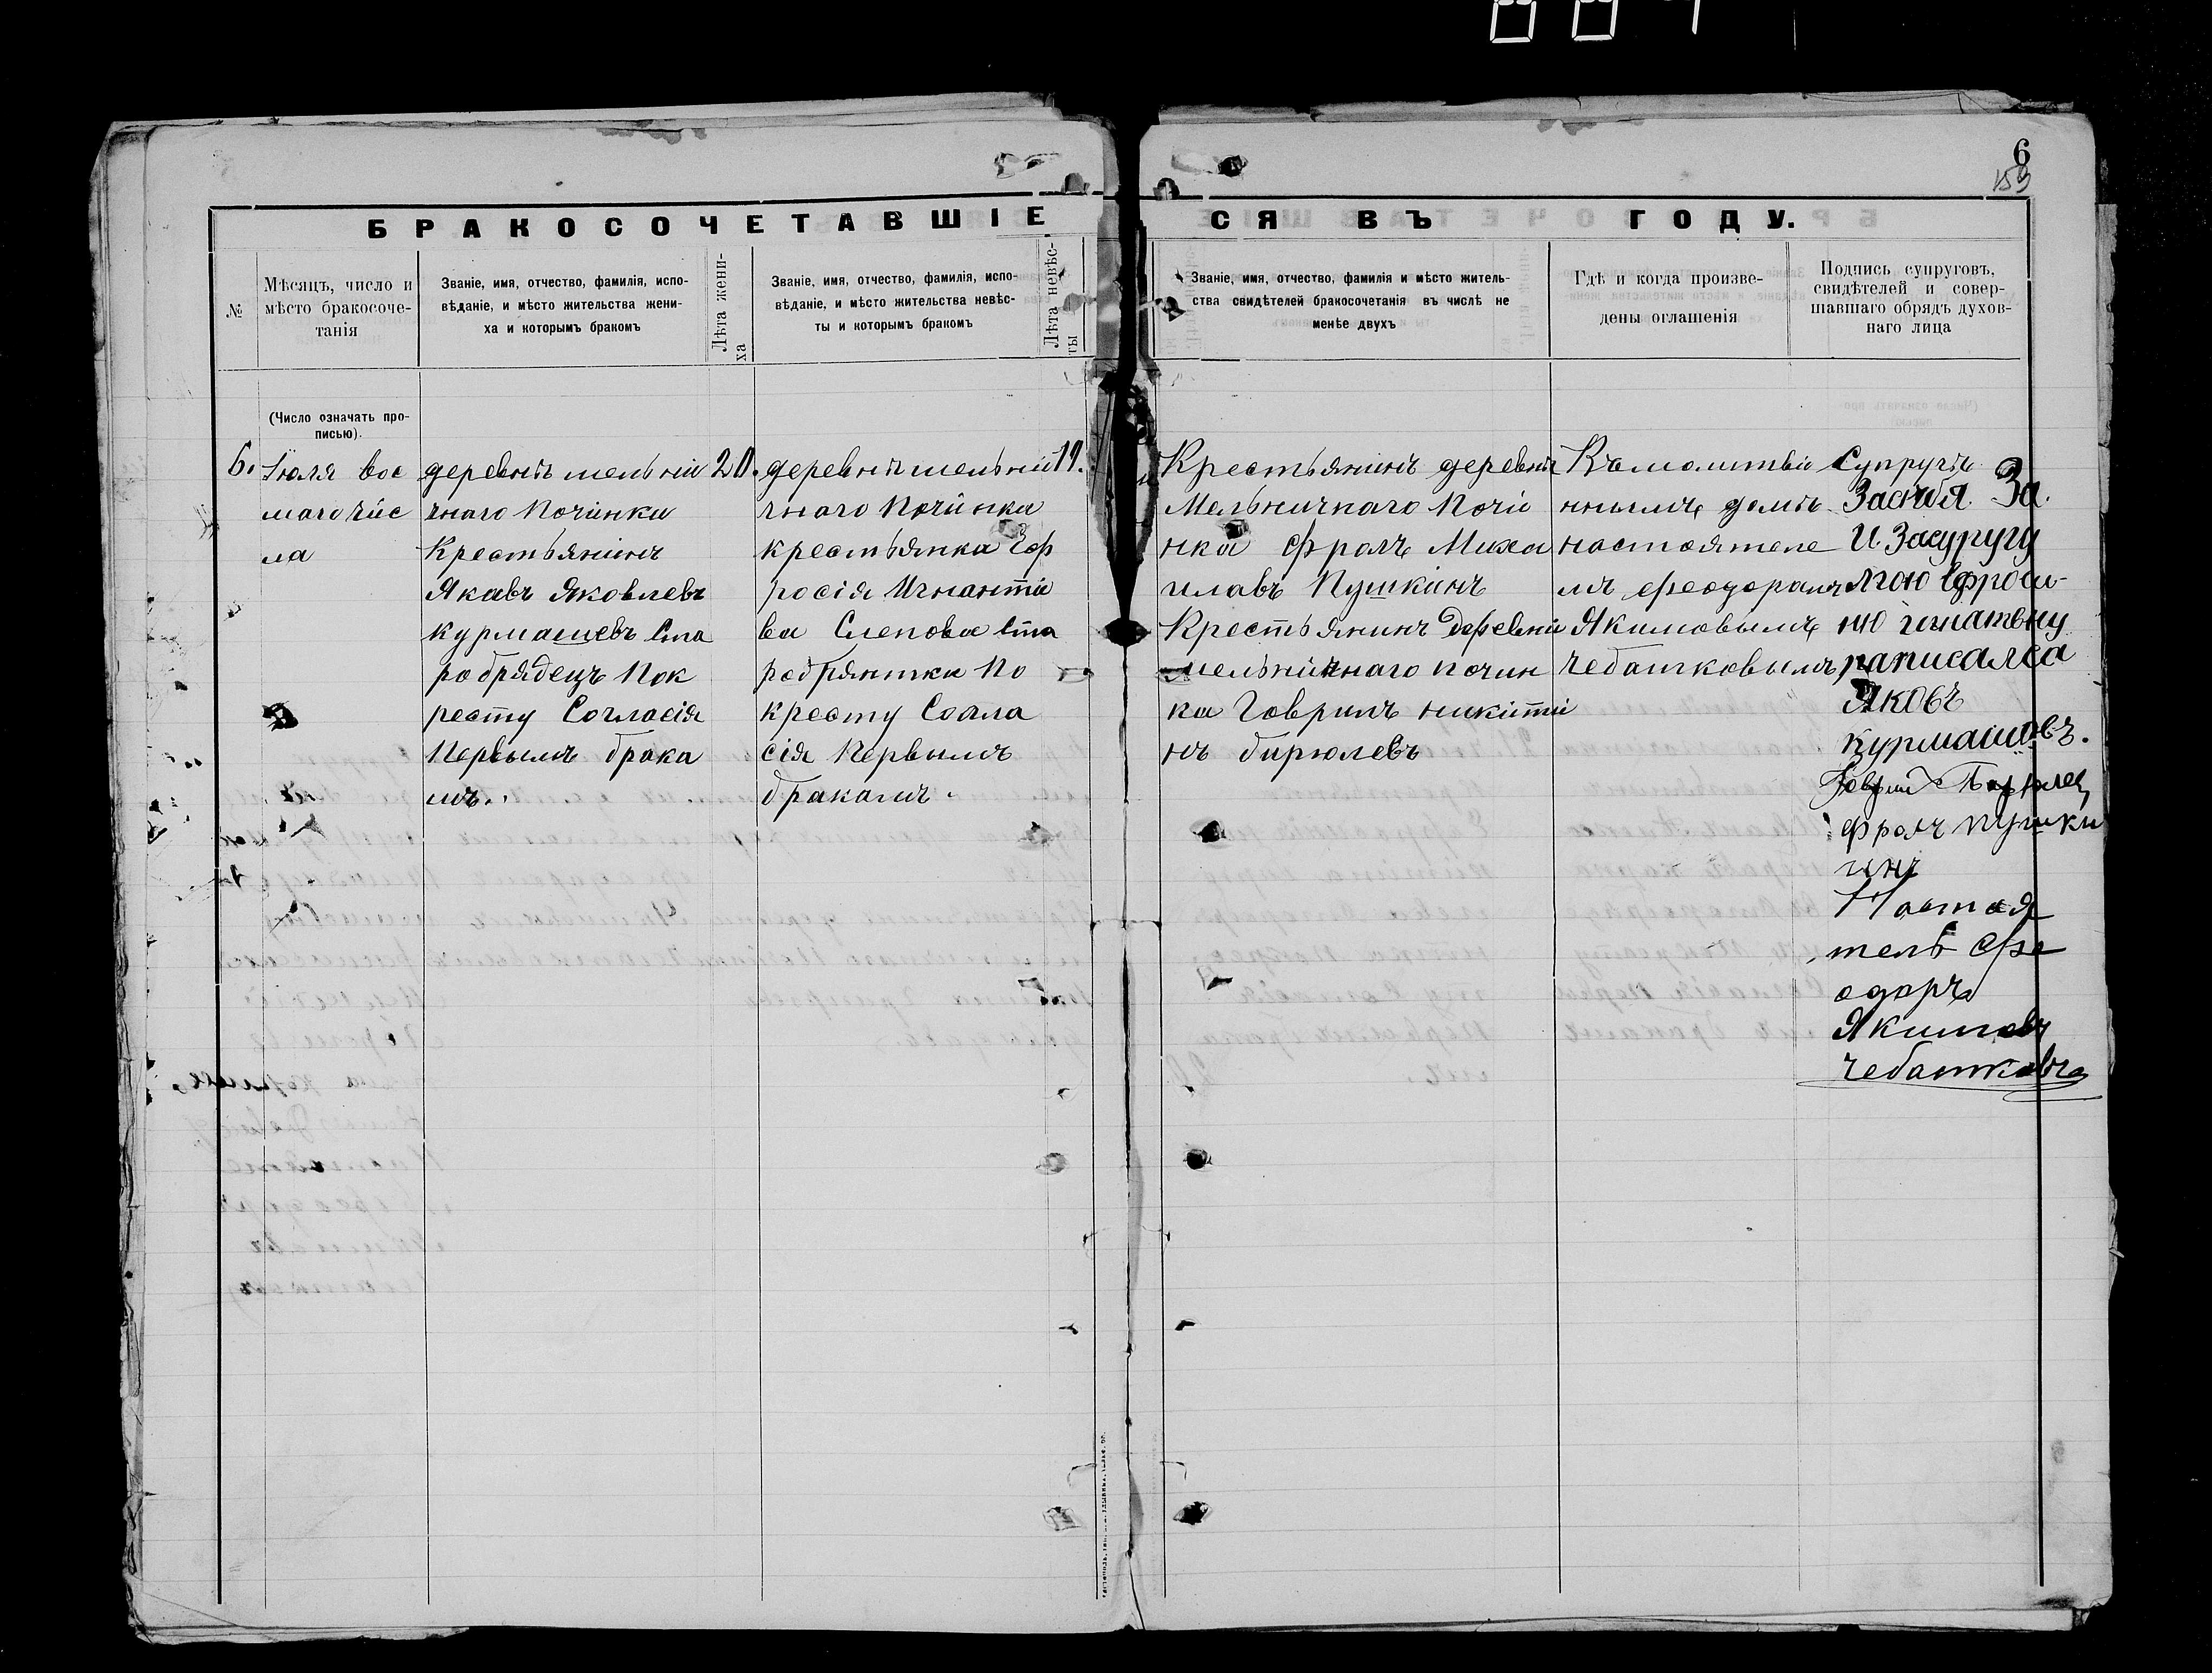 6
159
БРАКОСОЧЕТАВШІЕ
СЯ ВЪ ГОДУ.
№
Мѣсяцъ, число и
мѣсто бракосоче-
танія
Званіе, имя, отчество, фамилія, испо-
вѣданіе, и мѣсто жительства жени-
ха и которымъ бракомъ
Лѣта жени-
ха
Званіе, имя, отчество, фамилія, испо-
вѣданіе, и мѣсто жительства невѣс-
ты и которымъ бракомъ
Лѣта невѣс-
ты
Званіе, имя, отчество, фамилія и мѣсто житель-
ства свидѣтелей бракосочетанія въ числѣ не
менѣе двухъ
Гдѣ и когда произве-
дены оглашенія
Подпись супруговъ,
свидѣтелей и совер-
шавшаго обрядъ духов-
наго лица
(Число означать про-
писью).
6.
Іюля вос
маго чис
ла
деревнѣ мельнии
чнаго Починки
Крестьянинъ
Якавъ Яковлевъ
курмашевъ Ста
робрядецъ Пок
ресту Согласія
Первымъ брака
мъ.
20.
деревнѣ мельнии
чнаго Починки
крестьянка Еф
росія Игнантіе
ва Слепова Ста
робрянтка По
кресту Согла
сія Первымъ
бракамъ.
19.
Крестьянинъ деревни
Мельничнаго Почи
нка Фролъ Миха
илавъ Пушкинъ
Крестьянинъ Деревни
мельничнаго почин
ка Говрилъ никити
нъ бирюлевъ
Въ молитве
нномъ доме
настоятеле
мъ Феодорамъ
Якимовымъ
чебатковымъ
Супруги
Засибя За.
И Засуругу
мою Ефроси-
ню игнатвну
раписалса
Яковъ
Курмашовъ.
Говрил Бирюлев
Фролъ пушки
инъ
Настоя
тель Фе
одоръ
Якимовъ
чебатковъ